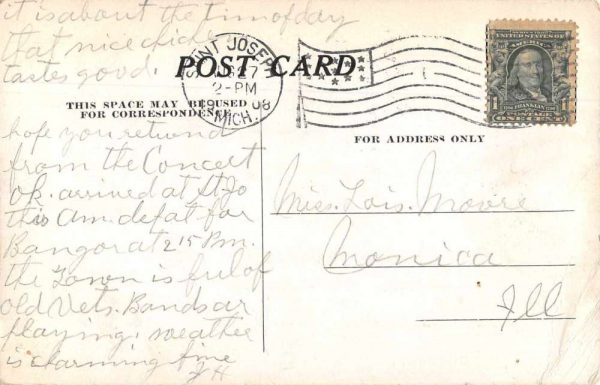 it is about the time of day
that nice
tastes good.
POST CARD.
SAINT JOSEPH
2-PM
1908
MICH.
THIS SPACE MAY BE USED
FOR CORRESPONDENCE
FOR ADDRESS ONLY
UNITED STATES OF
AMERICA
1 FRANKLIN 1
POSTAGE
ONE CENT
hope you returnd
from the Concert
ok. arrived at St Jo
this am. depat for
Bangor at 2 15 Pm.
the Town is ful of
old Vets. Bands ar
playing. weather
is charming fine
Miss. Lois. Moore
Monica
Ill